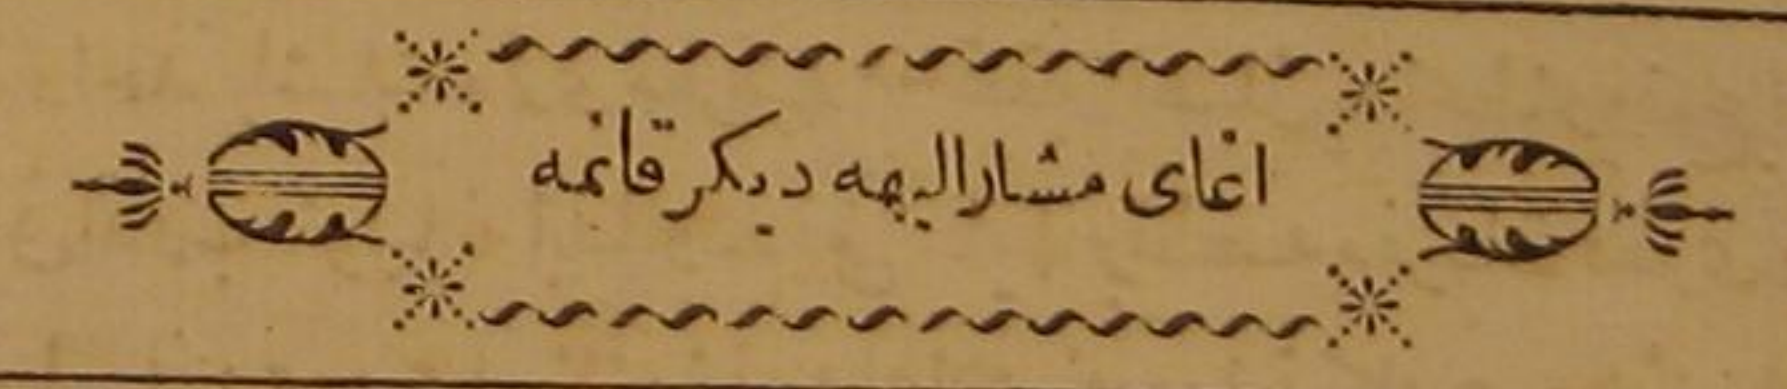 اغای مشارالیهه دیکر قائمه